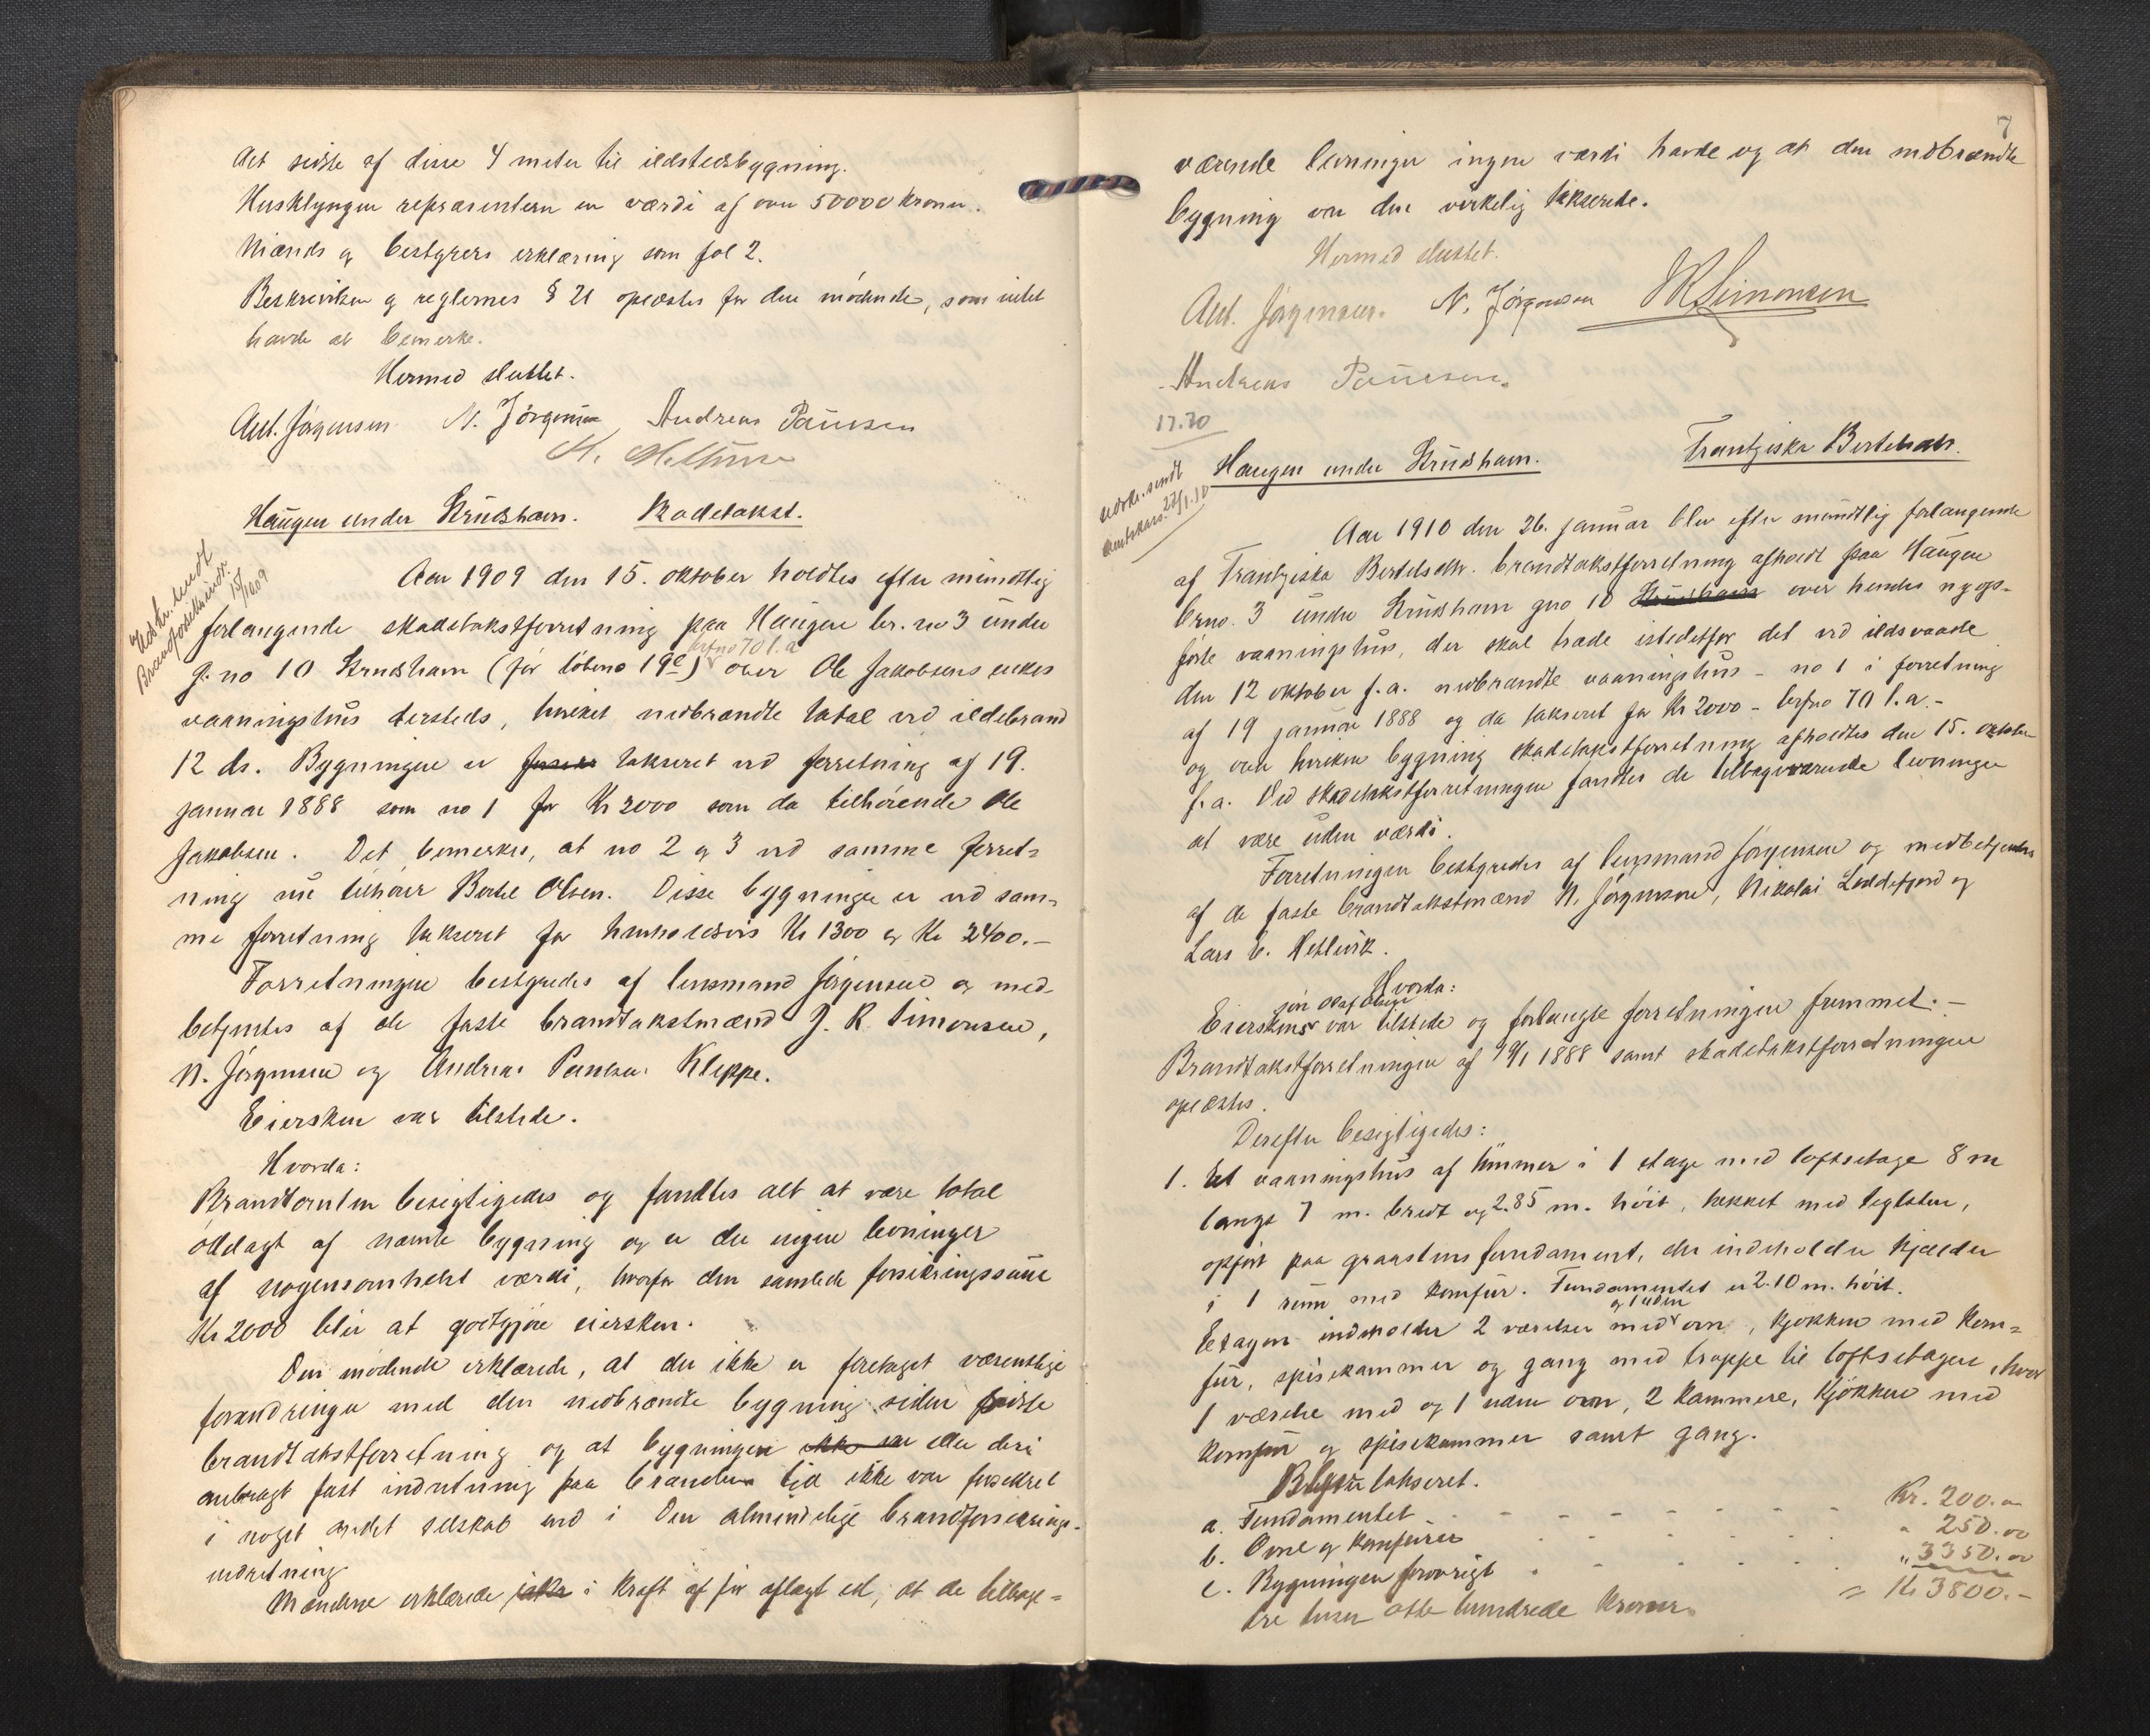 det sidste af disse 4 meter til ildstedsbygning.
Husklyngen repræsenterer en værdi af over 50000 kroner.
Mænds og bestyrers erklæring som fol 2.
Beskrivelsen og reglernes § 21 oplæstes for den mødende, som intet
havde at bemerke.
Hermed sluttet.
Ant. Jørgensen N. Jørgensen Andreas Paulsen
Haugen under Strudshavn. Skadetakst.
Udskr. sendt
Brandforsikrindr.
15/10 09
Aar 1909 den 15. oktober holdtes efter mundtlig
forlangende skadetakstforretning paa Haugen br. no 3 under
brfno 70 l.a
g. no 10 Strudshavn (før løbeno 19e) over Ole Jakobsens enkes
vaaningshus dersteds, hvilket nedbrændte total ved ildebrand
12 ds. Bygningen er takseret ved forretning af 19.
januar 1888 som no 1 for Kr 2000 som da tilhørende Ole
Jakobsen. Det bemerkes, at no 2 og 3 ved samme forret=
ning nu tilhører Bertel Olsen. Disse bygninger er ved sam=
me forretning takseret for henholdsvis Kr 1300 og Kr 2400.-
Forretningen bestyredes af lensmand Jørgensen og med-
betjentes af de faste brandtakstmænd J. R. Simonsen,
N. Jørgensen og Andreas Paulsen Kleppe.
Eiersken var tilstede.
Hvorda:
Brandtomten besigtigedes og fandtes alt at være total
ødelagt af nævnte bygning og er der ingen levninger
af nogensomhelst værdi, hvorfor den samlede forsikringssum
Kr 2000 blir at godtgjøre eiersken.
Den mødende erklærede, at der ikke er foretaget væsentlige
forandringer med den nedbrændte bygning siden sidste
brandtakstforretning og at bygningen eller deri
anbragt fast indretning paa brandens tid ikke var forsikret
i noget andet selskab end i Den almindelige brandforsikrings-
indretning.
Mændene erklærede i kraft af før aflagt ed, at de tilbage=
7
værende levninger ingen værdi havde og at den nedbrændte
bygning var den virkelig takserede.
Hermed sluttet.
Ant. Jørgensen. N. Jørgensen JRSimonsen
Andreas Paulsen.
17.70
Udskr. sendt
27/1.10
Haugen under Strudshavn. Frantziska Bertelsdtr.
Aar 1910 den 26. januar blev efter mundtlig forlangende
af Frantziska Bertelsdtr. brandtakstforretning afholdt paa Haugen
brno. 3 under Strudshavn gno 10 Strudshavn over hendes nyop-
førte vaaningshus, der skal træde istedetfor det ved ildsvaade
den 12 oktober f.a. nedbrændte vaaningshus - no 1 i forretning
af 19 januar 1888 og da takseret for Kr 2000 - brfno 70 l.a.-
og over hvilken bygning skadetakstforretning afholdtes den 15. oktober
f.a. Ved skadetakstforretningen fandtes de tilbageværende levninger
at være uden værdi.
Forretningen bestyredes af lensmand Jørgensen og medbetjentes
af de faste brandtakstmænd N. Jørgensen, Nikolai Loddefjord og
Lars E. Hetlevik.
Hvorda:
søn Olaf Olsen
Eierskens var tilstede og forlangte forretningen fremmet.-
Brandtakstforretningen af 19/1 1888 samt skadetakstforretningen
oplæstes.
Derefter besigtigedes:
1. Et vaaningshus af tømmer i 1 etage med loftsetage 8 m
langt 7 m. bredt og 2.85 m. høit, tækket med teglsten,
opført paa graastens fundament, der indeholder kjælder
i 1 rum med komfur. Fundamentet er 2.10 m. høit.
og 1 uden
Etagen indeholder 2 værelser med ovn, kjøkken med kom=
fur, spisekammer og gang med trappe til loftsetagen, hvor
1 værelse med og 1 uden ovn, 2 kammere, kjøkken med
komfur og spisekammer samt gang.
Blev takseret.
a. Fundamentet - - - - - - - Kr. 200.00
b. Ovne og komfurer - - - - - " 250.00
c. Bygningen forøvrigt - - - - - " 3350.00
tre tusen otte hundrede kroner. = Kr 3800.-